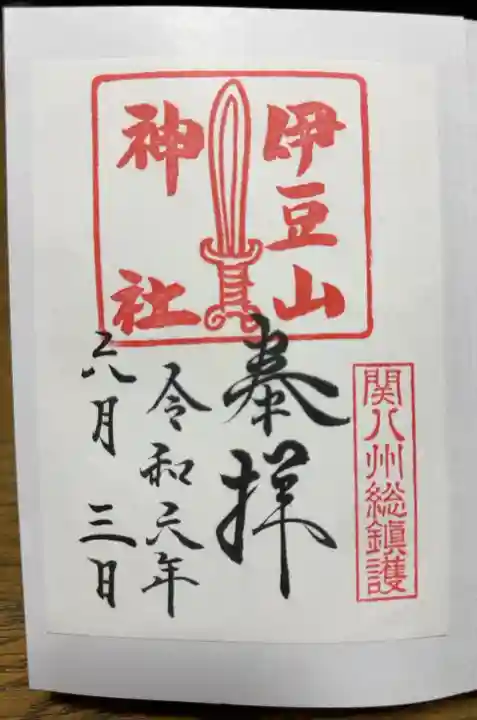 伊豆山
神社
関八州総鎮護
奉拝
令和六年
六月三日